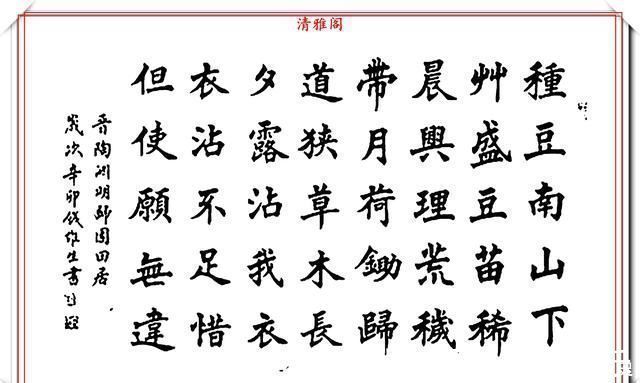 清雅阁
種豆南山下
艸盛豆苗稀
晨興理荒穢
帶月荷鋤歸
道狹草木長
夕露沾我衣
衣沾不足惜
但使願無違
晋陶渊明歸園田居
歲次辛卯钱作生書